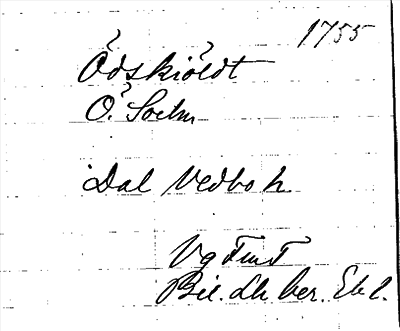 1755
Ödskiöldt
Ö. Socken
Dal Vedbo h
Vg Fmt
Bil. Lh. ber. Ekl.